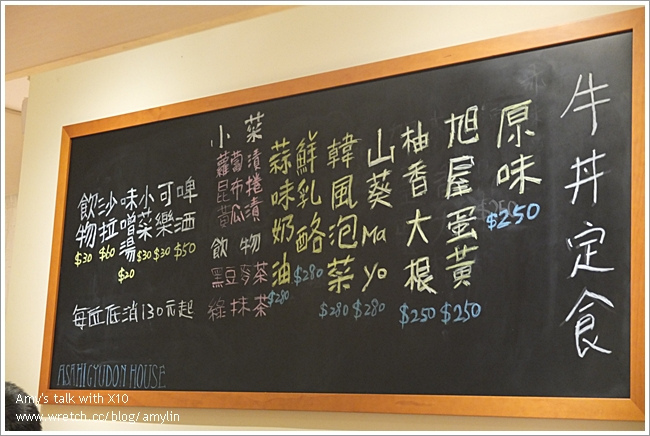 牛丼定食
原味 $250
旭屋蛋黃 $250
柚香大根 $250
山葵Mayo $280
韓風泡菜 $280
鮮乳酪 $280
蒜味奶油 $280
小菜
蘿蔔漬
昆布捲
黃瓜漬
飲物
黑豆麥茶
綠抹茶
啤酒 $50
可樂 $30
小菜 $30
味噌湯 $20
沙拉 $60
飲物 $30
每丘低消130元起
ASAHI GYUDON HOUSE
Amy's talk with X10
www.wretch.cc/blog/amylin